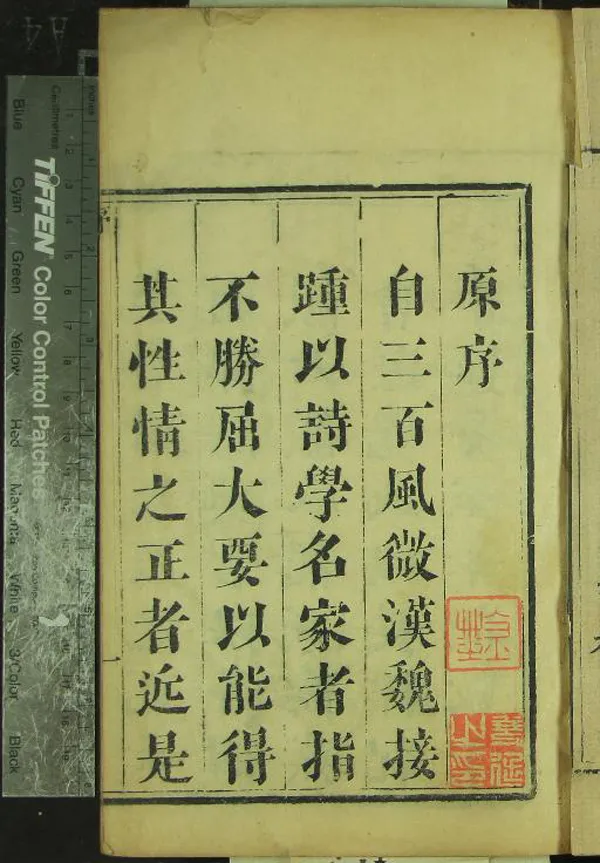 原序
自三百風微漢魏接
踵以詩學名家者指
不勝屈大要以能得
其性情之正者近是
一
TIFFEN Color Control Patches
Centimetres
Inches
Blue
Cyan
Green
Yellow
Red
Magenta
White
3/Color
Black